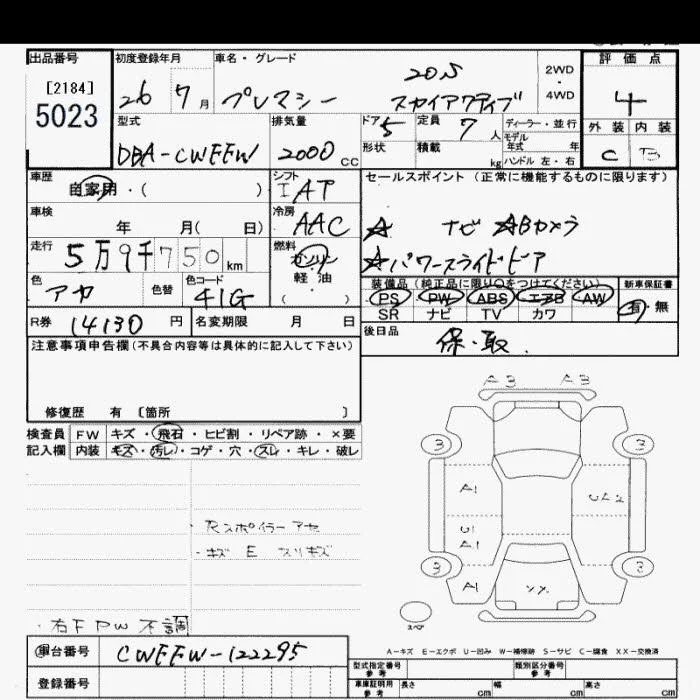 出品番号 初度登録年月 車名・グレード 評価点
[2184]
5023
26 7月 プレマシー 20S スカイアクティブ 2WD・4WD 4
型式 排気量 ドア 5 定員 7人 ディーラー・並行 外装 内装
DBA-CWEFW 2000cc 形状 積載 kg モデル年式 年 ハンドル 左・右 C B
車歴 自家用・( ) シフト IAT セールスポイント(正常に機能するものに限ります)
車検 年 月( 日) 冷房 AAC ☆ ナビ ☆Bカメラ
走行 5万9千750km 燃料 ガソリン 軽油 ( ) ☆パワースライドドア
色 アカ 色替 色コード 41G 装備品(純正品に限り○をつけてください) 新車保証書
PS PW ABS エアB AW 有・無
SR ナビ TV カワ
R券 14130円 名変期限 月 日 後日品 保・取
注意事項申告欄(不具合内容等は具体的に記入して下さい)
修復歴 有 〔箇所 〕
検査員記入欄 FW キズ・飛石・ヒビ割・リペア跡・×要
内装 キズ・汚レ・コゲ・穴・スレ・キレ・破レ
A3 A3
3 3
A1 UA2
U1
A1
3 3
A1 XX
スペア
・Rスポイラーアセ
・キズ E スリキズ
・右F PW 不調
A-キズ E-エクボ U-凹み W-補修跡 S-サビ C-腐食 XX-交換済
車台番号 CWEFW-122295
登録番号
型式指定番号 参考 類別区分番号 参考
車庫証明用 参考 長さ cm 幅 cm 高さ cm